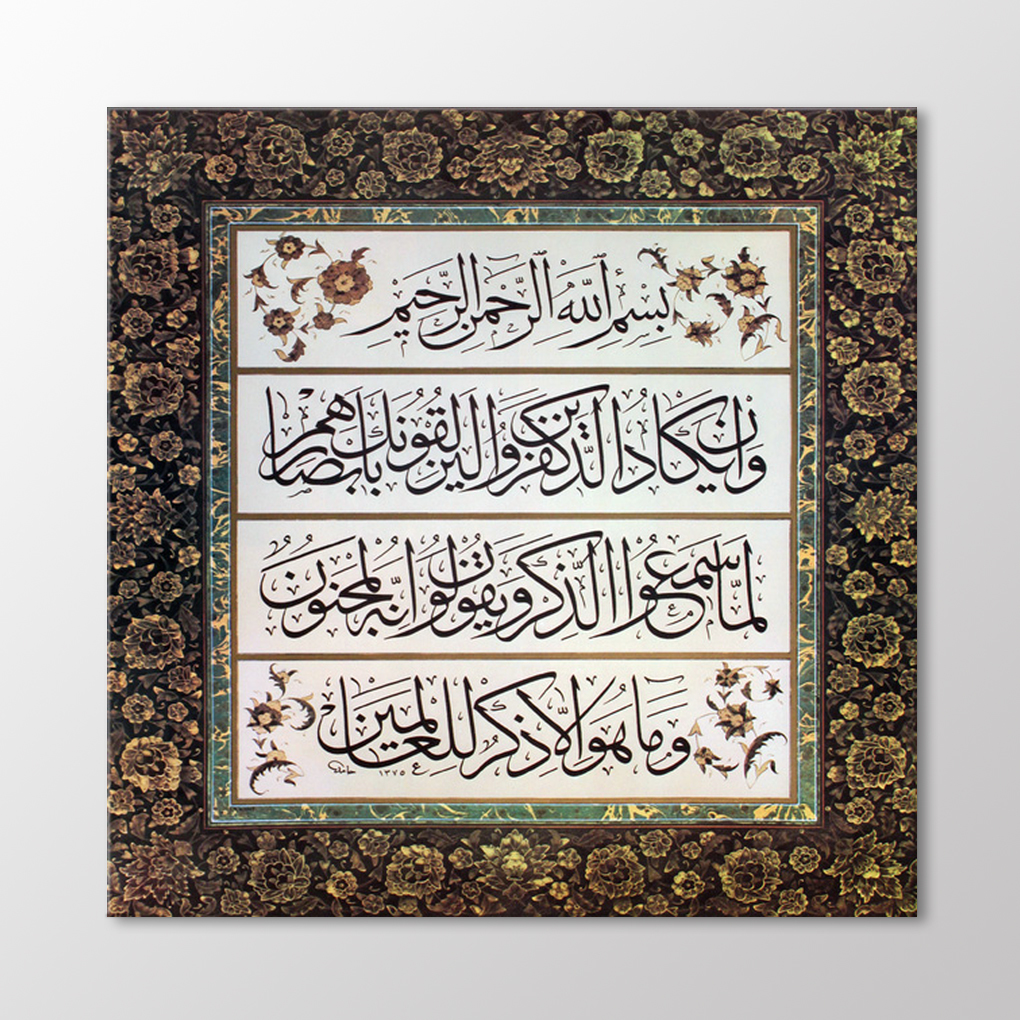 بِسْمِ اللَّهِ الرَّحْمٰنِ الرَّحِيمِ
وَإِنْ يَكَادُ الَّذِينَ كَفَرُوا لَيُزْلِقُونَكَ بِأَبْصَارِهِمْ
لَمَّا سَمِعُوا الذِّكْرَ وَيَقُولُونَ إِنَّهُ لَمَجْنُونٌ
وَمَا هُوَ إِلَّا ذِكْرٌ لِلْعَالَمِينَ
حامد ١٣٧٥